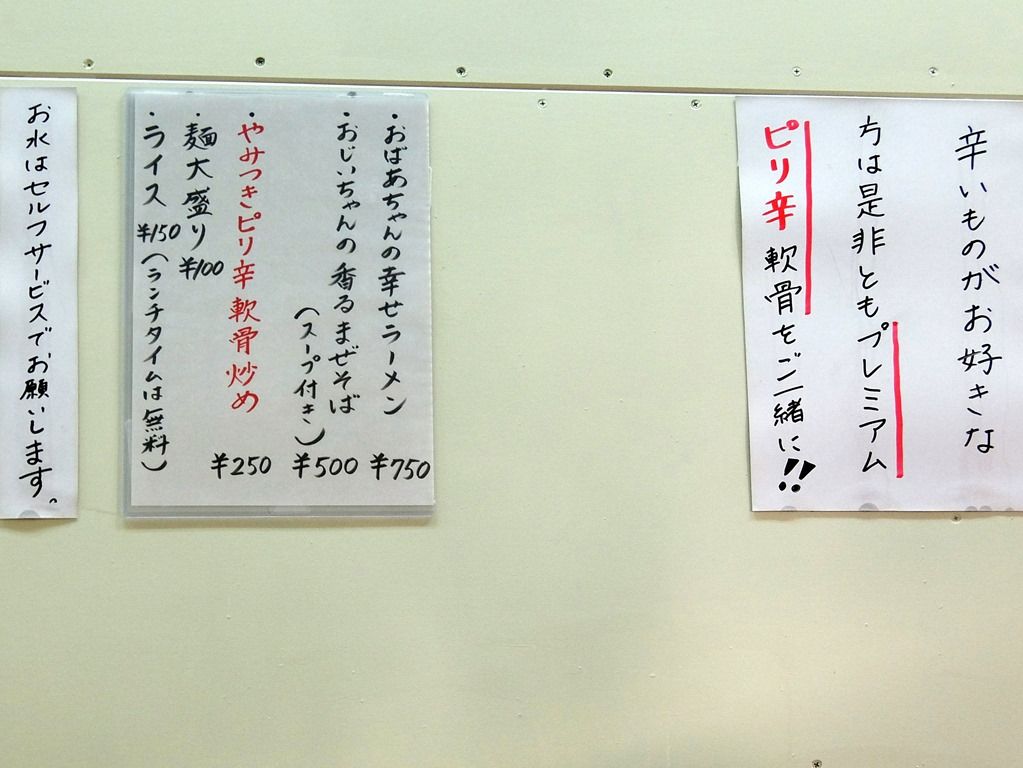 辛いものがお好きな
方は是非ともプレミアム
ピリ辛軟骨をご一緒に!!
・おばあちゃんの幸せラーメン ¥750
・おじいちゃんの香るまぜそば
(スープ付き) ¥500
・やみつきピリ辛軟骨炒め ¥250
・麺大盛り ¥100
・ライス ¥150 (ランチタイムは無料)
お水はセルフサービスでお願いします。